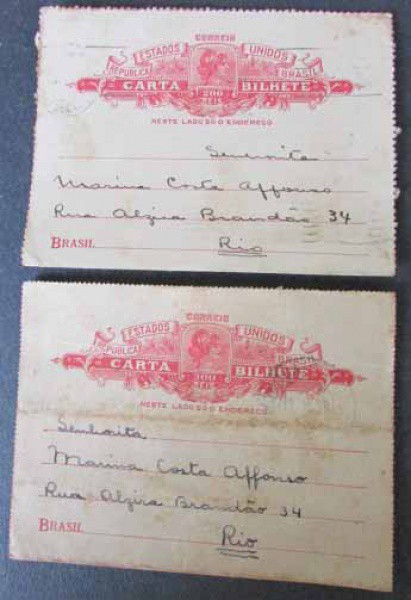 CORREIO
ESTADOS UNIDOS
REPUBLICA BRASIL
CARTA 200 BILHETE
REIS
NESTE LADO SÓ O ENDEREÇO
Senhorita
Marina Costa Affonso
Rua Alzira Brandão 34
BRASIL Rio
CORREIO
ESTADOS UNIDOS
REPUBLICA BRASIL
CARTA BILHETE
NESTE LADO SÓ O ENDEREÇO
Senhorita
Marina Costa Affonso
Rua Alzira Brandão 34
BRASIL Rio